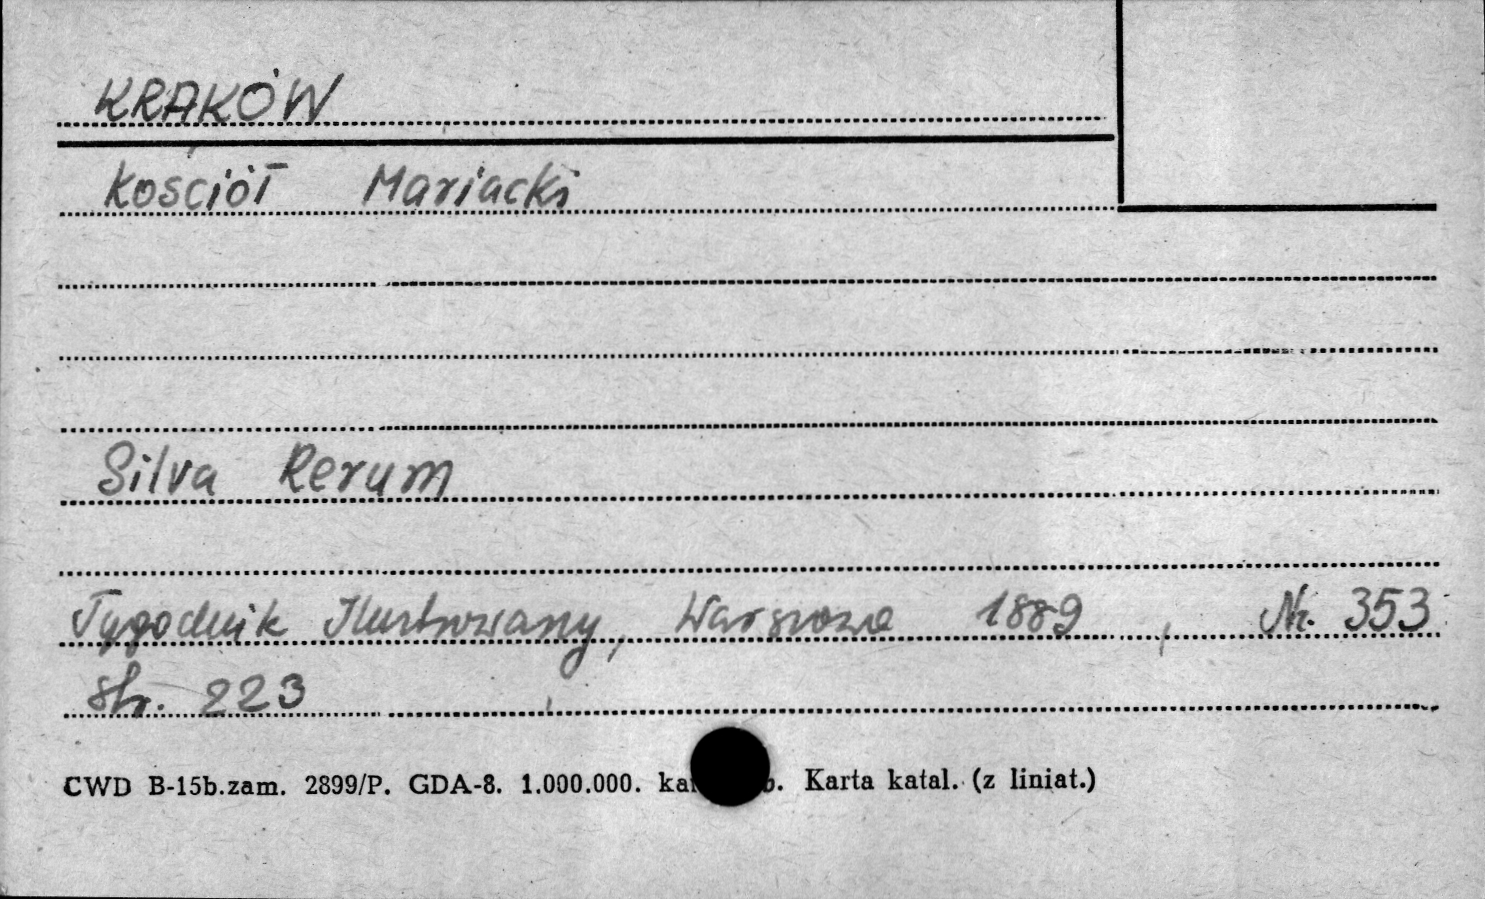 KRAKÓW
Kościół Mariacki
Silva Rerum
Tygodnik Ilustrowany, Warszawa 1889, Nr. 353
str. 223
CWD B-15b.zam. 2899/P. GDA-8. 1.000.000. Karta katal. (z liniat.)